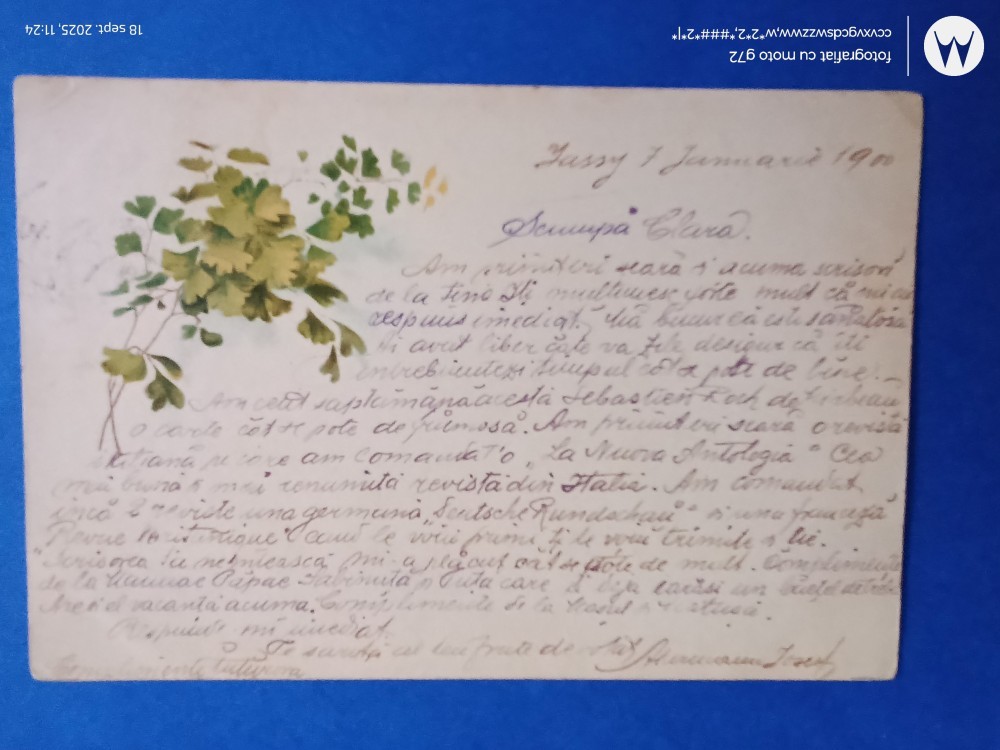 18 sept. 2025, 11:24
fotografiat cu moto g72
ccvxygcdswzzww,w*2*2,*###*2*|*
Jassy 7 Januarie 1900
Scumpă Clara.
Am primit eri seară și acuma scrisori
de la tine Iți mulțumesc forte mult că mi ai
respuns imediat. Mă bucur că ești sănătosă
Ai avut liber câte va zile desigur că iți
intrebuintezi timpul cât se pote de bine.
Am cetit saptămâna acestă Sebastien Roch de Mirbeau
o carte cât se pote de frumosă. Am primit eri seară o revistă
italiană pe care am comandat'o "La Nuova Antologia" Cea
mai bună și mai renumită revistă din Italia. Am comandat
incă 2 reviste una germană "Deutsche Rundschau" și una franceză
Revue când le voiu primi ți le voiu trimite și ție.
Scrisorea ta nemțească mi-a plăcut cât se pote de mult. Complimente
de la Mamae Papae Sabinuța care a
Are și el vacanță acuma. Complimente de la
Respunde mi imediat
Te sarută al tau frate devotat Hermann Josef
Complimente tuturora